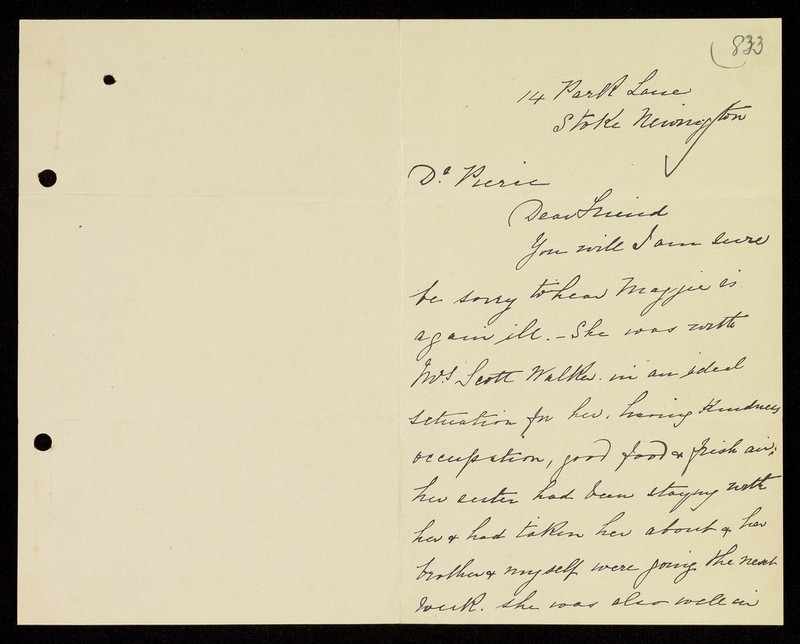 833
14 Park Lane
Stoke Newington
Dr. Pierce
Dear Friend
You will I am sure
be sorry to hear Maggie is
again ill. - She was with
Mrs Scott Walker. in an ideal
situation for her, having kindness
occupation, good food & fresh air;
her sister had been staying with
her & had taken her about & her
brother & myself were going the next
week. she was also well in